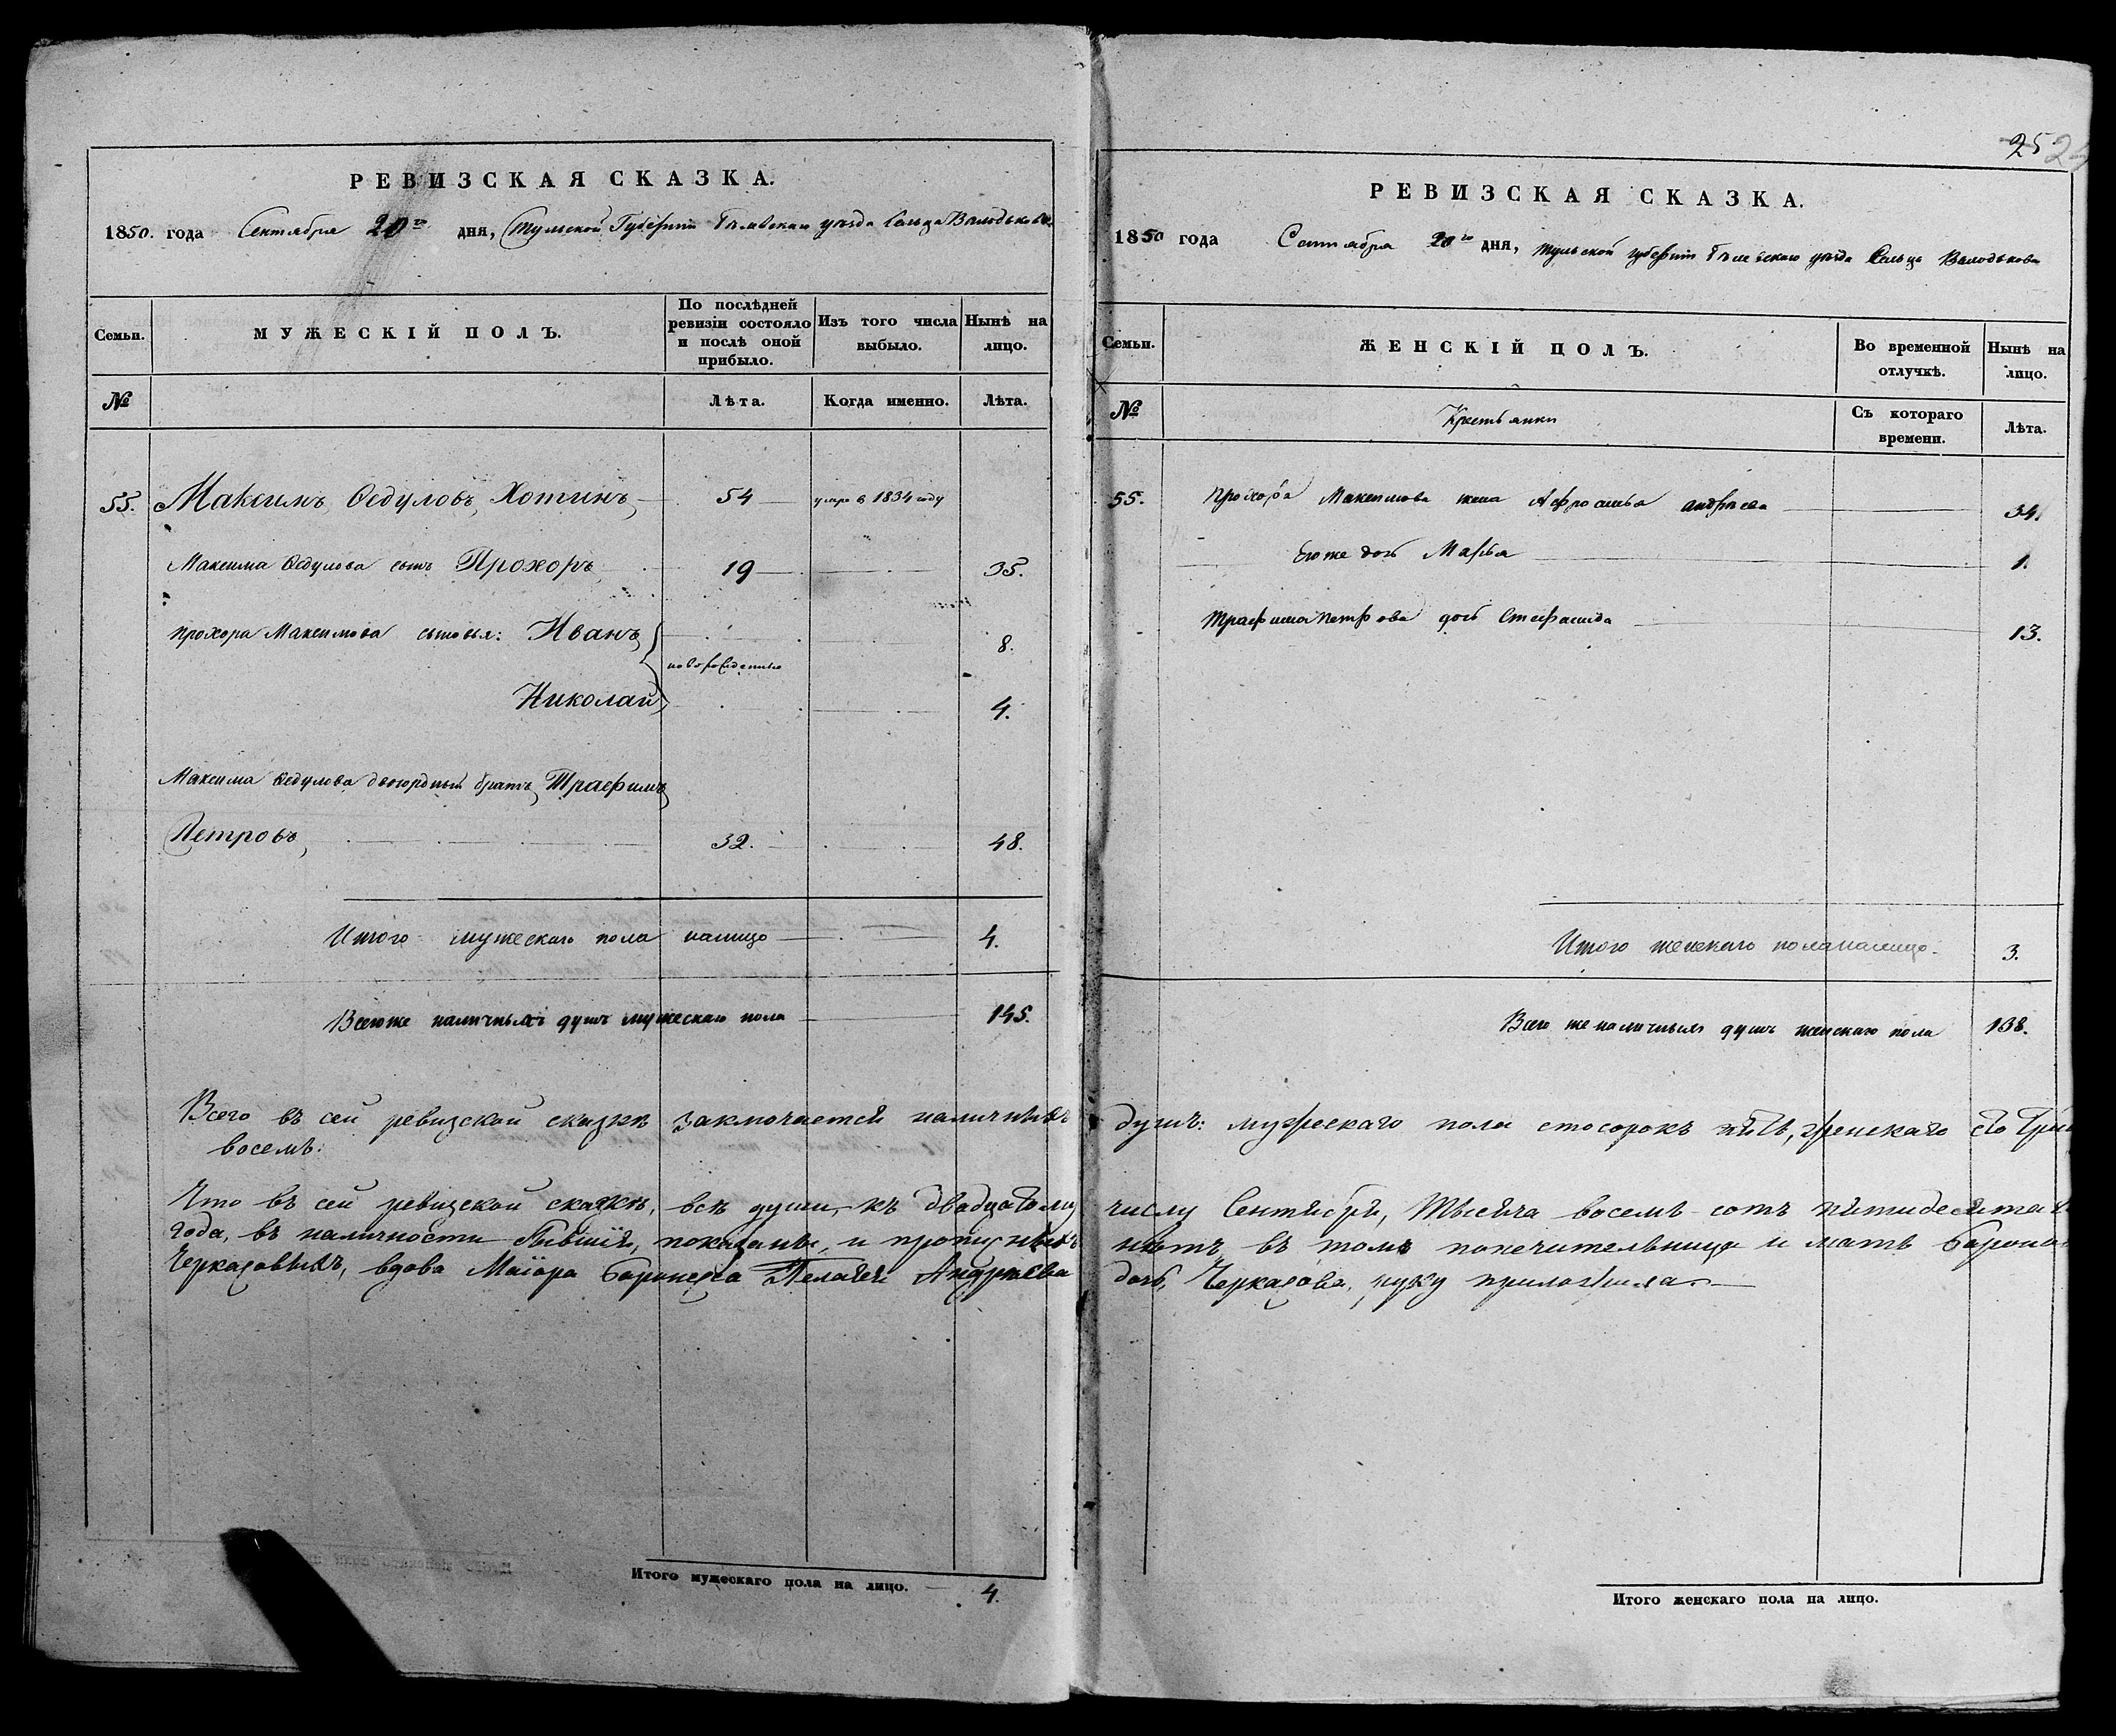 РЕВИЗСКАЯ СКАЗКА.
1850. года Сентября 20го дня, Тульской Губернии Бѣлевскаго уѣзда Сельца Володькова
Семьи.
МУЖЕСКІЙ ПОЛЪ.
По послѣдней ревизіи состояло и послѣ оной прибыло.
Изъ того числа выбыло.
Нынѣ на лицо.
№
Лѣта.
Когда именно.
Лѣта.
55. Максимъ Ѳедуловъ Хотинъ 54 умре в 1834 году
Максима Ѳедулова сынъ Прохоръ 19 35.
Прохора Максимова сыновья: Иванъ 8.
новорожденные
Николай 4.
Максима Ѳедулова двоюродный братъ Трафимъ
Петровъ 32. 48.
Итого мужескаго пола налицо 4.
Всегоже наличныхъ душъ мужескаго пола 145.
Всего въ сей ревизской сказкѣ заключается наличныхъ
восемь:
Что въ сей ревизской сказкѣ, всѣ души, къ двадцатому
года, въ наличности бывшія, показаны, и прописныхъ
Черкасовыхъ, вдова Маіора Баронесса Пелагея Андрѣева
Итого мужескаго пола на лицо. 4.
25
РЕВИЗСКАЯ СКАЗКА.
1850 года Сентября 20го дня, Тульской губернии Бѣлевскаго уѣзда Сельца Володькова
Семьи.
ЖЕНСКІЙ ПОЛЪ.
Во временной отлучкѣ.
Нынѣ на лицо.
№
Крестьянки
Съ котораго времени.
Лѣта.
55. Прохора Максимова жена Афросинья Андрѣева 34.
Егоже дочь Марья 1.
Трафима Петрова дочь Стефанида 13.
Итого женскаго пола налицо. 3.
Всего же наличныхъ душъ женскаго пола 138.
душъ: мужескаго пола сто сорокъ пять, женскаго сто
числу Сентября, Тысяча восемь сотъ пятидесятаго
нѣтъ, въ томъ попечительница и мать
дочь, Черкасова, руку приложила.
Итого женскаго пола на лицо.